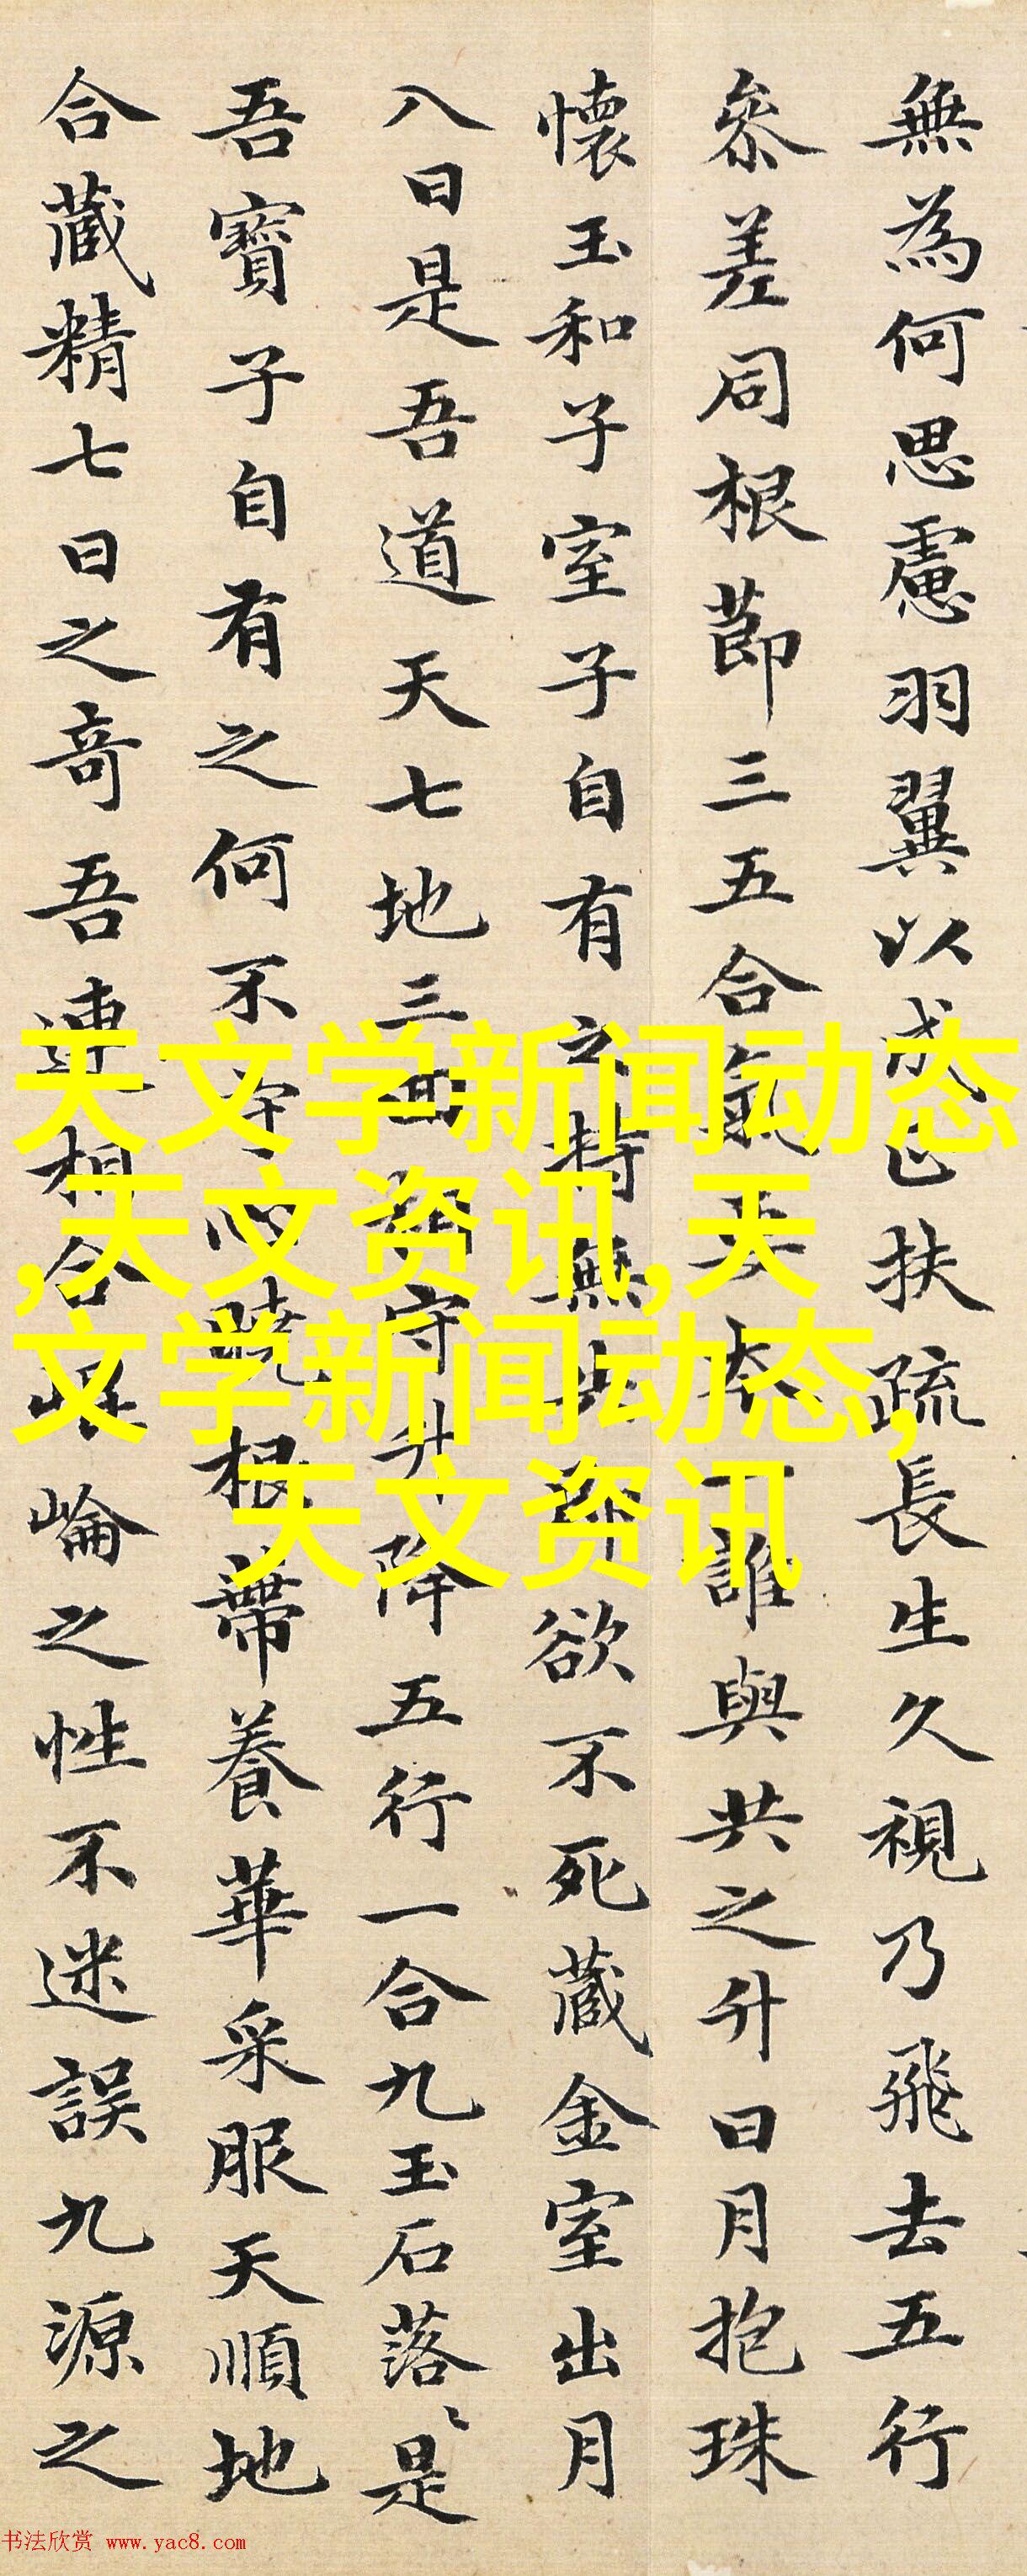 無為何思慮羽翼以成正扶疏長生久視乃飛去五行
參差同根節三五合氣要本一誰與共之升日月抱珠
懷玉和子室子自有之持無失即欲不死藏金室出月
八日是吾道天七地三回相守升降五行一合九玉石落〻是
吾寶子自有之何不守心曉根蔕養華采服天順地
合藏精七日之奇吾連相合崐崘之性不迷誤九源之
天文学新闻动态
,天文资讯,天
文学新闻动态,
天文资讯
书法欣赏 www.yac8.com